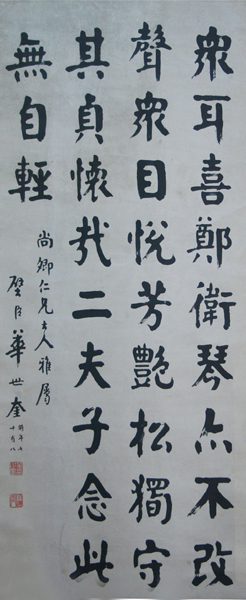 衆耳喜鄭衛琴亦不改
聲衆目悅芳豔松獨守
其貞懷哉二夫子念此
無自輕
尚卿仁兄大人雅屬
璧臣華世奎
時年七
十有八